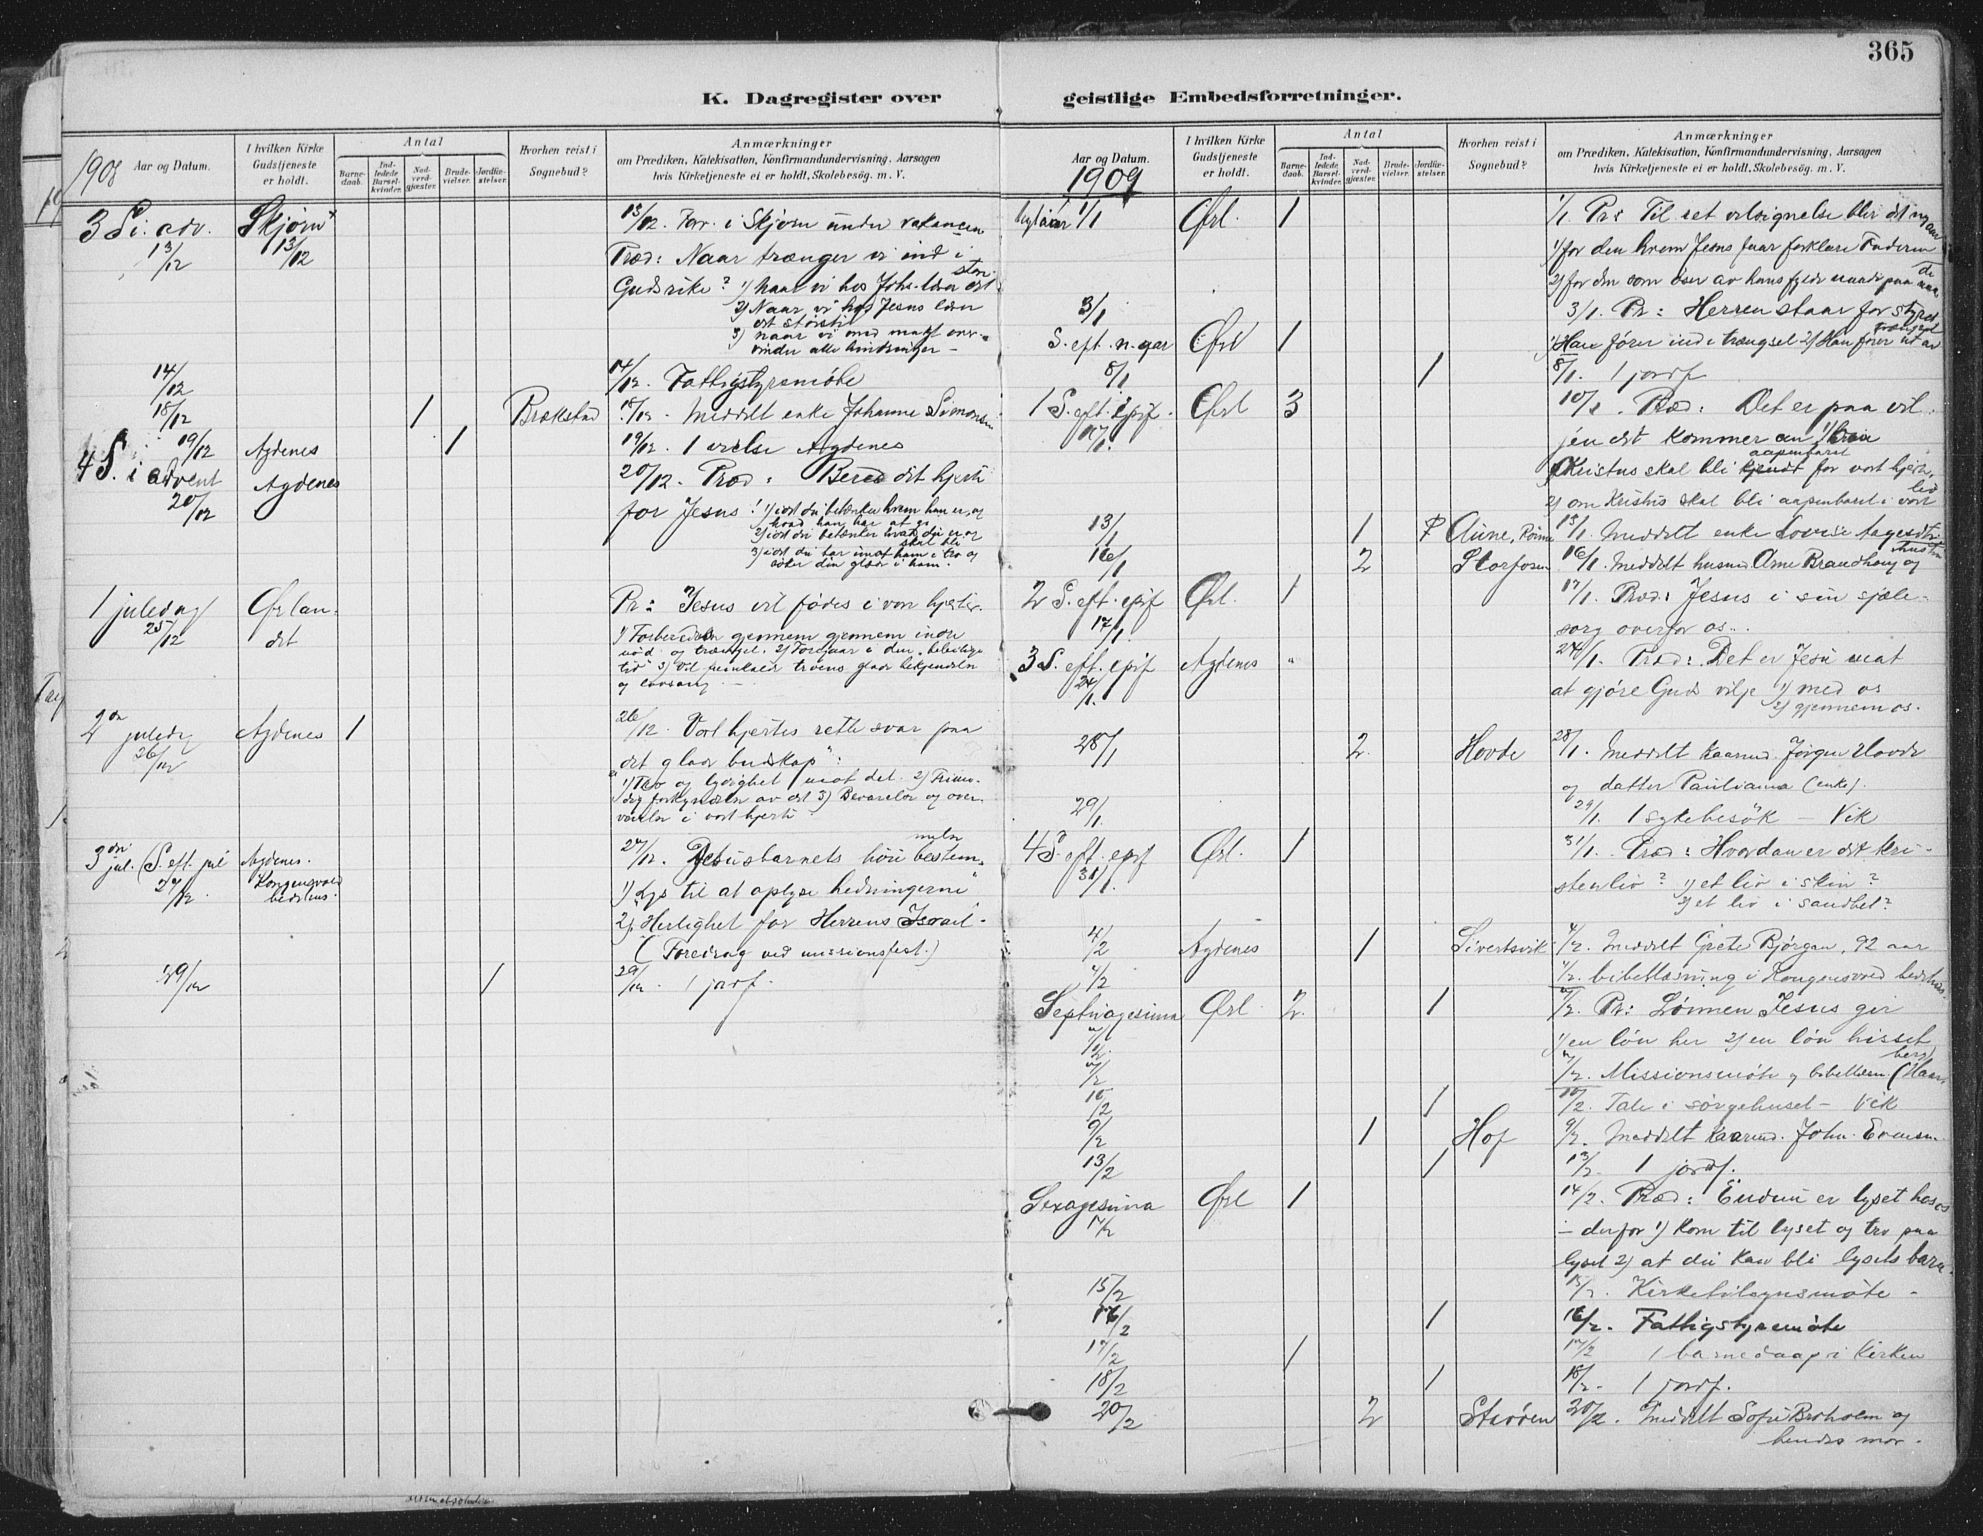 365
K. Dagregister over geistlige Embedsforretninger.
Aar og Datum.
I hvilken Kirke Gudstjeneste er holdt.
Antal
Barne-daab.
Ind-ledede Barsel-kvinder.
Nad-verd-gjæster.
Brude-vielser.
Jordfæ-stelser.
Hvorhen reist i Sognebud?
Anmærkninger
om Prædiken, Katekisation, Konfirmandundervisning, Aarsagen
hvis Kirketjeneste ei er holdt, Skolebesøg. m. V.
1908
3 S. i. adv. 13/12 Skjørn 13/12
13/12. Forr. i Skjørn under vakancen
Præd: Naar trænger vi ind i
Guds rike? 1) Naar vi hos Johs. lærer det
2) Naar vi hos Jesus lærer
det største
3) naar vi med magt over-
vinder alle hindringer –
14/12 14/12. Fattigstyremøte
18/12 1 Brækstad 18/12. Meddelt enke Johanne Simonsen
19/12 Agdenes 1 19/12. 1 vielse Agdenes
4 S. i advent 20/12 Agdenes 20/12. Præd: Bered dit hjerte
for Jesus! 1) idet du betænker hvem han er, og
hvad han har at gi
2) idet du betænker hvad du er og
skal bli
3) idet du tar imot ham i tro og
søker din glæde i ham.
1 juledag 25/12 Ørlan-
det
Pr: Jesus vil fødes i vore hjerter.
1) Forberedelse gjennem gjennem indre
nød og trængsel.
og lovsang –
2den juledag 26/12 Agdenes 1 26/12. Vort hjertes rette svar paa
det glade budskap:
1) Tro og lydighet mot det. 2) Frimo-
dig forkyndelse av det 3) Bevarelse og over-
veielse i vort hjerte
3die jul. (S. eft. jul 27/12 Agdenes.
Kongensvold
bedehus.
27/12. Jesusbarnets høie bestem-
melse
1) Lys til at oplyse hedningerne
2) Herlighet for Herrens Israel.
(Foredrag ved missionsfest.)
29/12 1 29/12. 1 jordf.
Aar og Datum.
I hvilken Kirke Gudstjeneste er holdt.
Antal
Barne-daab.
Ind-ledede Barsel-kvinder.
Nad-verd-gjæster.
Brude-vielser.
Jordfæ-stelser.
Hvorhen reist i Sognebud?
Anmærkninger
om Prædiken, Katekisation, Konfirmandundervisning, Aarsagen
hvis Kirketjeneste ei er holdt, Skolebesøg. m. V.
1909
Nytaar 1/1 Ørl. 1 1/1. Pr: Til ret velsignelse blir det nye aar
1) for den hvem Jesus faar forklare Faderen
2) for den som øser av hans fylde naade paa naade
3/1
S. eft. n. aar Ørl 1 3/1. Pr: Herren staar for styret
1) Han fører ind i trængsel 2) Han fører ut av trængsel
8/1 1 8/1. 1 jordf
1 S. eft. epif. 10/1. Ørl 3 10/1. Præd: Det er paa vil-
jen det kommer an
Kristus skal bli aapenbaret for vort hjerte,
2) om Kristus skal bli aapenbaret i vort liv
13/1 1 Aune, 13/1. Meddelt enke Lovise Aagesdtr.
16/1 2 Storfosen 16/1. Meddelt husmd. Arne Brandhaug og hustru
2 S. eft. epif 17/1. Ørl. 1 17/1. Præd: Jesus i sin sjæle-
sorg overfor os..
3 S. eft. epif 24/1. Agdenes " 24/1. Præd: Det er Jesu mat
at gjøre Guds vilje 1) med os
2) gjennem os.
28/1 2. Hovde 28/1. Meddelt kaarmd. Jørgen Hovde
og datter Pauliana (enke).
29/1. 29/1. 1 sykebesøk – Vik
4 S. eft. epif 31/1. Ørl. 1 31/1. Præd: Hvordan er dit kri-
stenliv? 1) et liv i skin?
2) et liv i sandhet?
4/2 Agdenes 1 Sivertsvik 4/2. Meddelt Grete Bjørgan, 92 aar
4/2 4/2. bibellæsning i Kongensvold bedehus.
Septuagesima 7/2 Ørl. 2. 1 7/2. Pr: Lønnen Jesus gir
1) en løn her 2) en løn hisset
7/2 7/2. Missionsmøte og bibellæsn. (Haarberg)
10/2 1 10/2. Tale i sørgehuset – Vik
9/2 1 Hof 9/2. Meddelt kaarmd. John Evensen
13/2 1 13/2. 1 jordf.
Sexagesima 14/2 Ørl 1 14/2. Præd: Endnu er lyset hos os
– derfor 1) Kom til lyset og tro paa
lyset 2) at du kan bli lysets barn.
15/2 15/2. Kirketilsynsmøte –
16/2 1 16/2. Fattigstyremøte
17/2 1 17/2 1 barnedaap i Kirken
18/2 1 18/2. 1 jordf.
20/2 2 Storøen 20/2. Meddelt Sofie Broholm og
hendes mor.